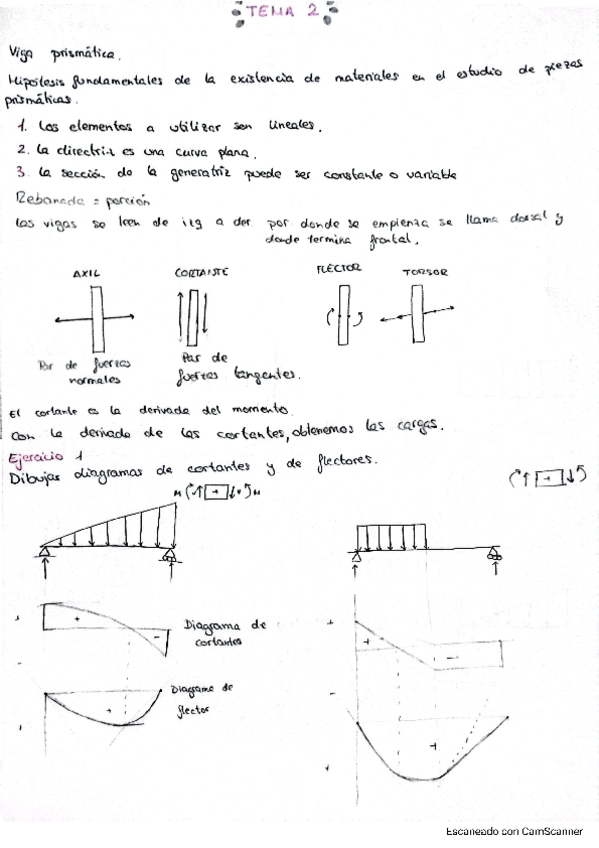 TEMA 2
Viga prismática.
Hipótesis fundamentales de la existencia de materiales en el estudio de piezas
prismáticas.
1. Los elementos a utilizar son lineales.
2. La directriz es una curva plana.
3. La sección de la generatriz puede ser constante o variable
Rebanada = porción
Las vigas se leen de izq a der por donde se empienza se llama dorsal y
donde termina frontal.
AXIL
CORTANTE
FLECTOR
TORSOR
Par de fuerzas
normales
Par de
fuerzas tangentes.
El cortante es la derivada del momento.
Con la derivada de los cortantes, obtenemos las cargas.
Ejercicio 1
Dibujas diagramas de cortantes y de flectores.
M + M
+
+
-
Diagrama de
cortantes
+
+
-
Diagrama de
flector
+
-
+
+
Escaneado con CamScanner